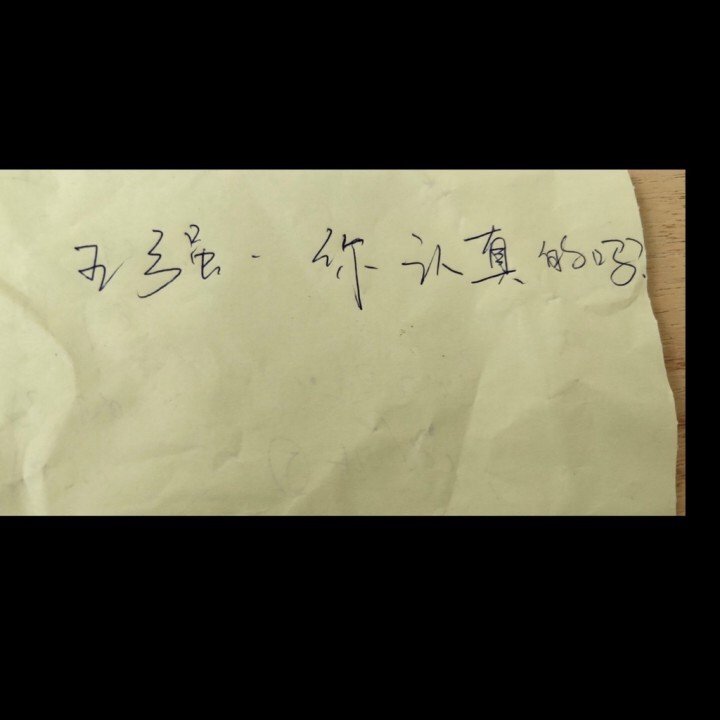 王强. 你认真的吗?